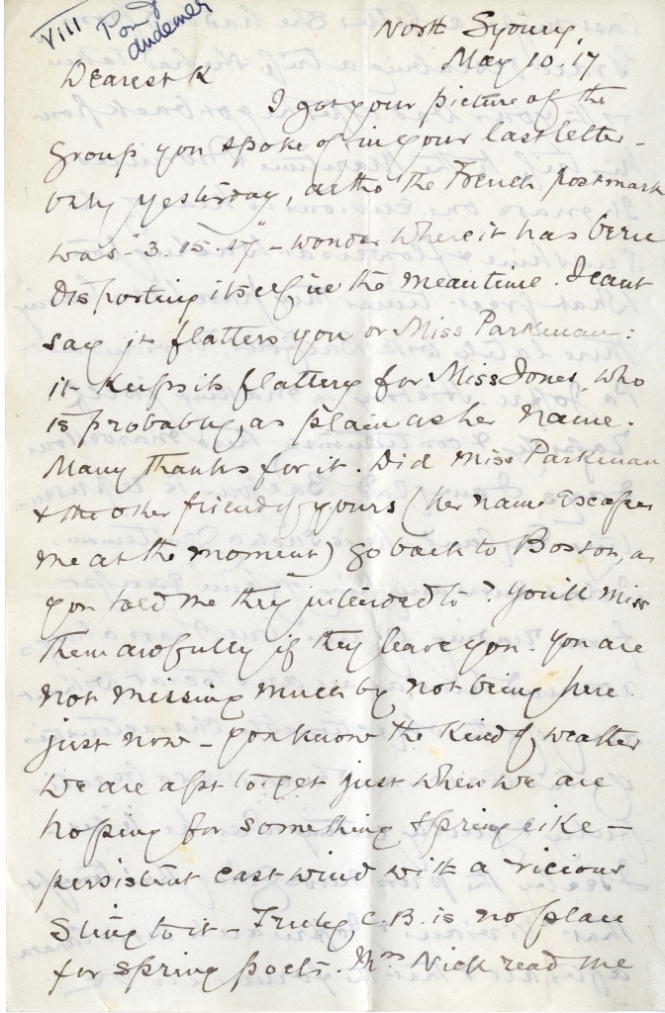 VIII Pont
Audemer
North Sydney,
May 10.17
Dearest K
I got your picture of the
group you spoke of in your last letter -
only yesterday, altho the French postmark
was "3.15.17" - wonder where it has been
disporting itself in the meantime. I cant
say it flatters you or Miss Parkman:
it keeps its flattery for Miss Jones, who
is probably, as plain as her name.
Many thanks for it. Did Miss Parkman
& the other friend of yours (her name escapes
me at the moment) go back to Boston, as
you told me they intended to? You'll miss
them awfully if they leave you. You are
not missing much by not being here
just now - you know the kind of weather
we are apt to get just when we are
hoping for something springlike -
persistent east wind with a vicious
sting to it - Truly, C.B. is no place
for spring poets. Mrs Nick read me